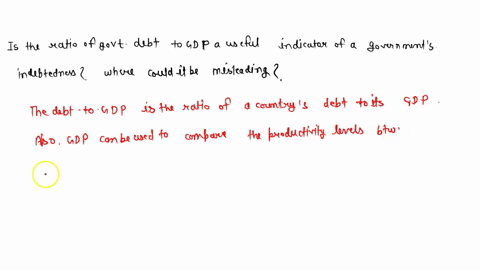 Is the ratio of govt. debt to GDP a useful indicator of a government's
indebtedness? where could it be misleading?
The debt-to-GDP is the ratio of a country's debt to its GDP.
Also, GDP can be used to compare the productivity levels btw.